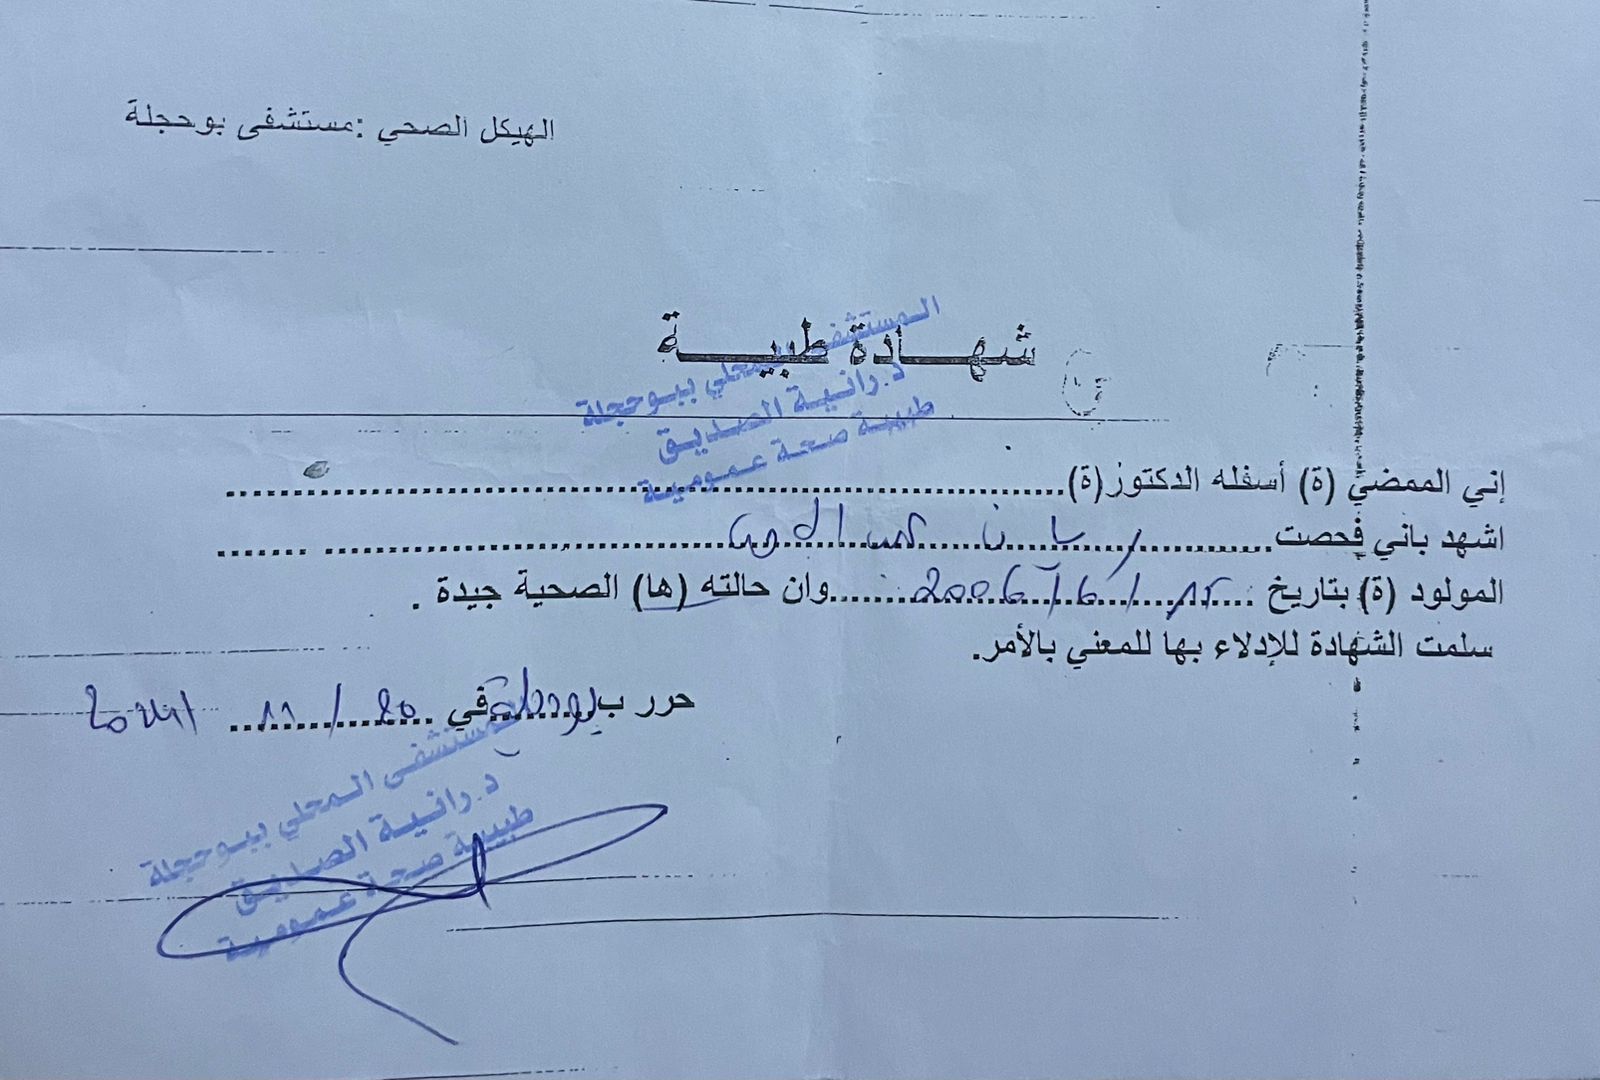 الهيكل الصحي :مستشفى بوحجلة
شهادة طبية
المستشفى المحلي ببوحجلة
د.رانية الصديق
طبيبة صحة عمومية
إني الممضي (ة) أسفله الدكتور(ة)
اشهد باني فحصت
المولود (ة) بتاريخ 15/6/2006 وان حالته (ها) الصحية جيدة .
سلمت الشهادة للإدلاء بها للمعني بالأمر.
حرر ب بوحجلة في 20/11/
المستشفى المحلي ببوحجلة
د.رانية الصديق
طبيبة صحة عمومية